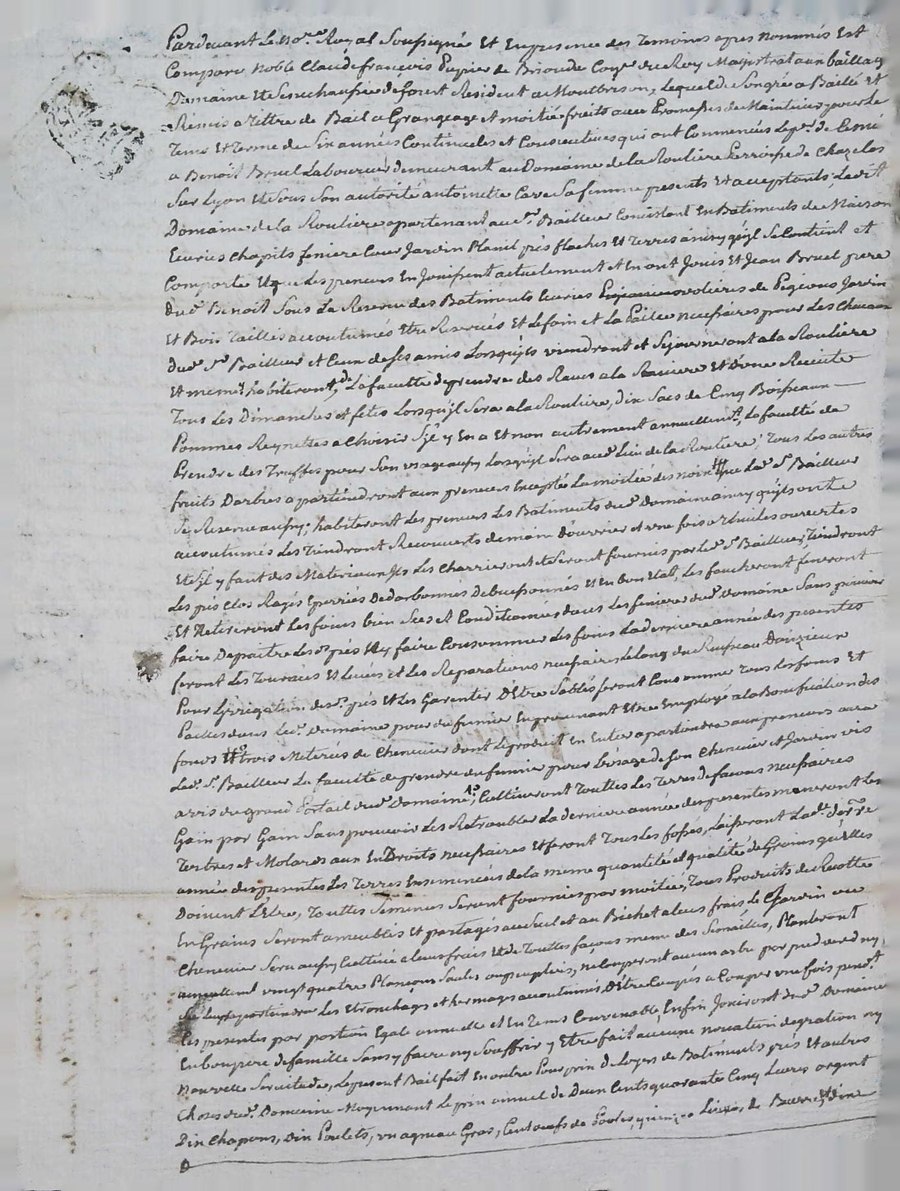 Pardevant Le Nore. Royal Soussigné Et En presence des Temoins apres Nommés Est
Comparu Noble Claude francois Pupier de Brioude Coner. du Roy Magistrat au bailliage
Domaine Et Senechaussée de forest Resident a Montbrison, Lequel de Son gré a Baillé et
Remis a Tittre de Bail a Grangeage et moitié fruits avec Promesse de Maintenir pour le
Tems Et Terme de Six années Continuelles et Consecutives qui ont Commencés Le de Ce mois
a Benoit Bruel Laboureur demeurant au Domaine de la Rouliere Parroisse de Chazelles
Sur Lyon Et Sous Son autorité antoinette Cave Sa femme presents Et acceptants, Ledit
Domaine de la Rouliere apartenant au Sr. Bailleur Consistant En Batiments de Maison
Ecuries Chapits feniere Cour Jardin Planil prés flaches Et Terres ainsy qu'il Se Contient et
Comporte Et que Les preneurs En Jouissent actuellement et En ont Jouis Et Jean Bruel pere
dud. Benoit Sous La Reserve des Batiments Ecuries volieres de Pigeons Jardin
Et Bois Taillis accoutumés Etre Reservés Et Le foin et La Paille necessaires pour Les Chevaux
dud. Sr. Bailleur et Ceux de Ses amis Lorsqu'ils viendront et Sejourneront a la Rouliere
Et memes habiteront, de La faculté de prendre des Raves a la Raviere Et d'une Recuite
Tous Les Dimanches et fetes Lorsqu'il Sera a la Rouliere, dix Sacs de Cinq Boisseaux
Pommes Reynettes a Choisir S'il y En a Et non autrement annuellemt., La faculté de
Prendre des Truffes pour Son usage aussy Lorsqu'il Sera aud. Lieu de la Rouliere, Tous Les autres
fruits D'arbres apartiendront aux preneurs Excepté La moitié des noix que Led. Sr. Bailleur
Se Reserve aussy; habiteront Les preneurs Les Batiments dud. Domaine ainsy qu'ils ont
accoutumés Les Tiendront Recouverts de main d'ouvrier et une fois a thuiles ouvertes
Et S'il y faut des Materiaux Ils Les Charrieront et Seront fournis par led. Sr. Bailleur, Tiendront
Les prés Clos Razés Eperriés Dedarbonnés Debuissonnés Et En bon Etat, Les faucheront feneront
Et Retireront Les foins bien Secs et Conditionnés dans Les fenieres dud. Domaine Sans pouvoir
faire Depaitre Lesd. prés Et y faire Consommer Les foins La derniere année des presentes
feront Les Tournées Et Levées et Les Reparations necessaires le long du Ruisseau
Pour L'irrigation desd. prés Et Les Garentir D'Etre Sablés feront Consommer Tous Les foins Et
Pailles dans Led. Domaine pour du fumier En provenant Etre Employé a la Bonification des
fonds trois Meterées de Chenevier dont Le produit En Entier apartiendra aux preneurs aura
Led. Sr. Bailleur La faculté de prendre du fumier pour L'usage de Son Chenevier et Jardin vis
a vis du grand Portail dud. Domaine, Cultiveront Touttes Les Terres de facons necessaires
Gain par Gain Sans pouvoir Les Retroubler La derniere année des presentes meneront Les
Tertres et Molards aux Endroits necessaires Et feront Tous Les fossés, Laisseront Lade. derre.
année des presentes Les Terres Ensemencées de la meme quantité et qualité de Grains qu'Elles
Doivent L'Etre, Touttes Semences Seront fournies par moitié, Tous Produits des Recoltes
En Grains Seront ameublés Et partagés au Suel et au Bichet a leurs frais Le Jardin ou
Chenevier Sera aussy Cultivé a leurs frais Et de Touttes facons meme des Semailles, Planteront
annuellemt. vingt quatre Plancons Saules ou peupliers, ne Couperont aucun arbre par pied verd ny
Sec Leur apartiendra Les Etronchages et hermages accoutumés D'Etre Coupés a Couper une fois pendt.
Les presentes par portion Egale annuelle et En Tems Convenable Enfin Jouiront dud. Domaine
En bon pere de famille Sans y faire ny Souffrir y Etre fait aucune novation degration ny
nouvelle Servitude, Le present Bail fait En outre Pour prix de Loyer de Batiments prés Et autres
Choses dud. Domaine Moyennant Le prix annuel de Deux Cents quarante Cinq Livres argent
Dix Chapons, Dix Poulets, un agneau Gras, Cent oeufs de Poules, quinze Livres de Beurre, Et dix